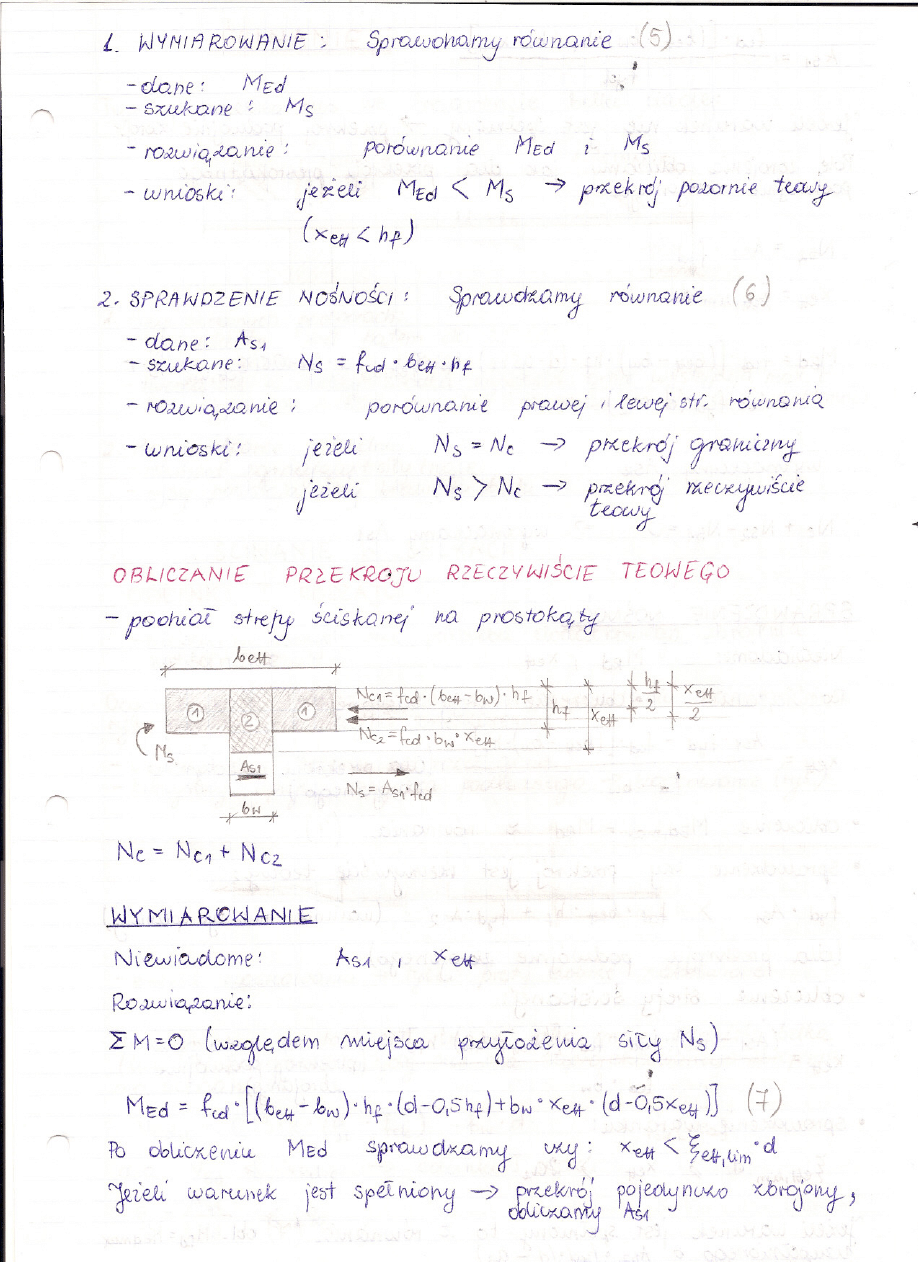 1. WYMIAROWANIE : Sprawdzamy równanie (5)
- dane: MEd
- szukane : MS
- rozwiązanie : porównanie MEd i MS
- wnioski: jeżeli MEd < MS → przekrój pozornie teowy
(xeff < hf)
2. SPRAWDZENIE NOŚNOŚCI : Sprawdzamy równanie (6)
- dane: AS1
- szukane: NS = fcd · beff · hf
- rozwiązanie : porównanie prawej i lewej str. równania
- wnioski: jeżeli NS = NC → przekrój graniczny
jeżeli NS > NC → przekrój rzeczywiście
teowy
OBLICZANIE PRZEKROJU RZECZYWIŚCIE TEOWEGO
- podział strefy ściskanej na prostokąty
beff
1 2 1
NC1 = fcd · (beff - bw) · hf
NC2 = fcd · bw · xeff
hf xeff hf/2 xeff/2
NS
AS1
NS = AS1 · fcd
bw
NC = NC1 + NC2
WYMIAROWANIE
Niewiadome: AS1 , xeff
Rozwiązanie:
ΣM=0 (względem miejsca przyłożenia siły NS)
MEd = fcd · [(beff - bw) · hf · (d - 0,5hf) + bw · xeff · (d - 0,5xeff)] (7)
Po obliczeniu MEd sprawdzamy czy : xeff < ξeff,lim · d
Jeżeli warunek jest spełniony → przekrój pojedynczo zbrojony,
obliczamy AS1